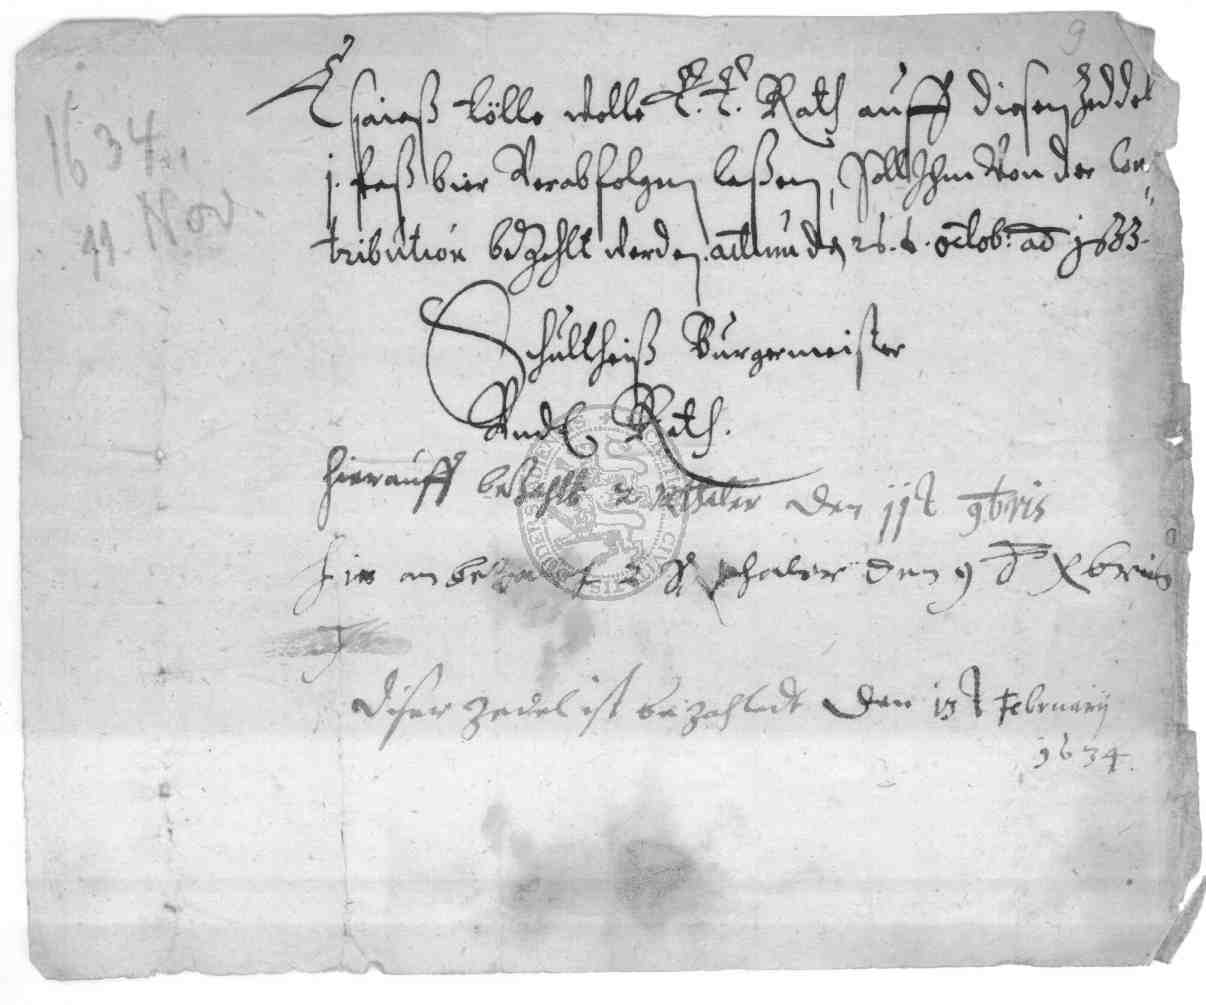 9
1634
11. Nov.
Esaiaß Kölle wolle E. E. Rath auff diesen Zeddel
j. faß bier Verabfolgen laßen, soll Ihm Von der Con
tribution bezahlt werden. 26. octob: ao 1633.
Schultheiß Burgermeister
Undt Rath.
hierauff bezahlt 2 den jj t 9bris
2 thaler den 9 Xbris
diser zedel ist bezahledt den 13 t February
1634.